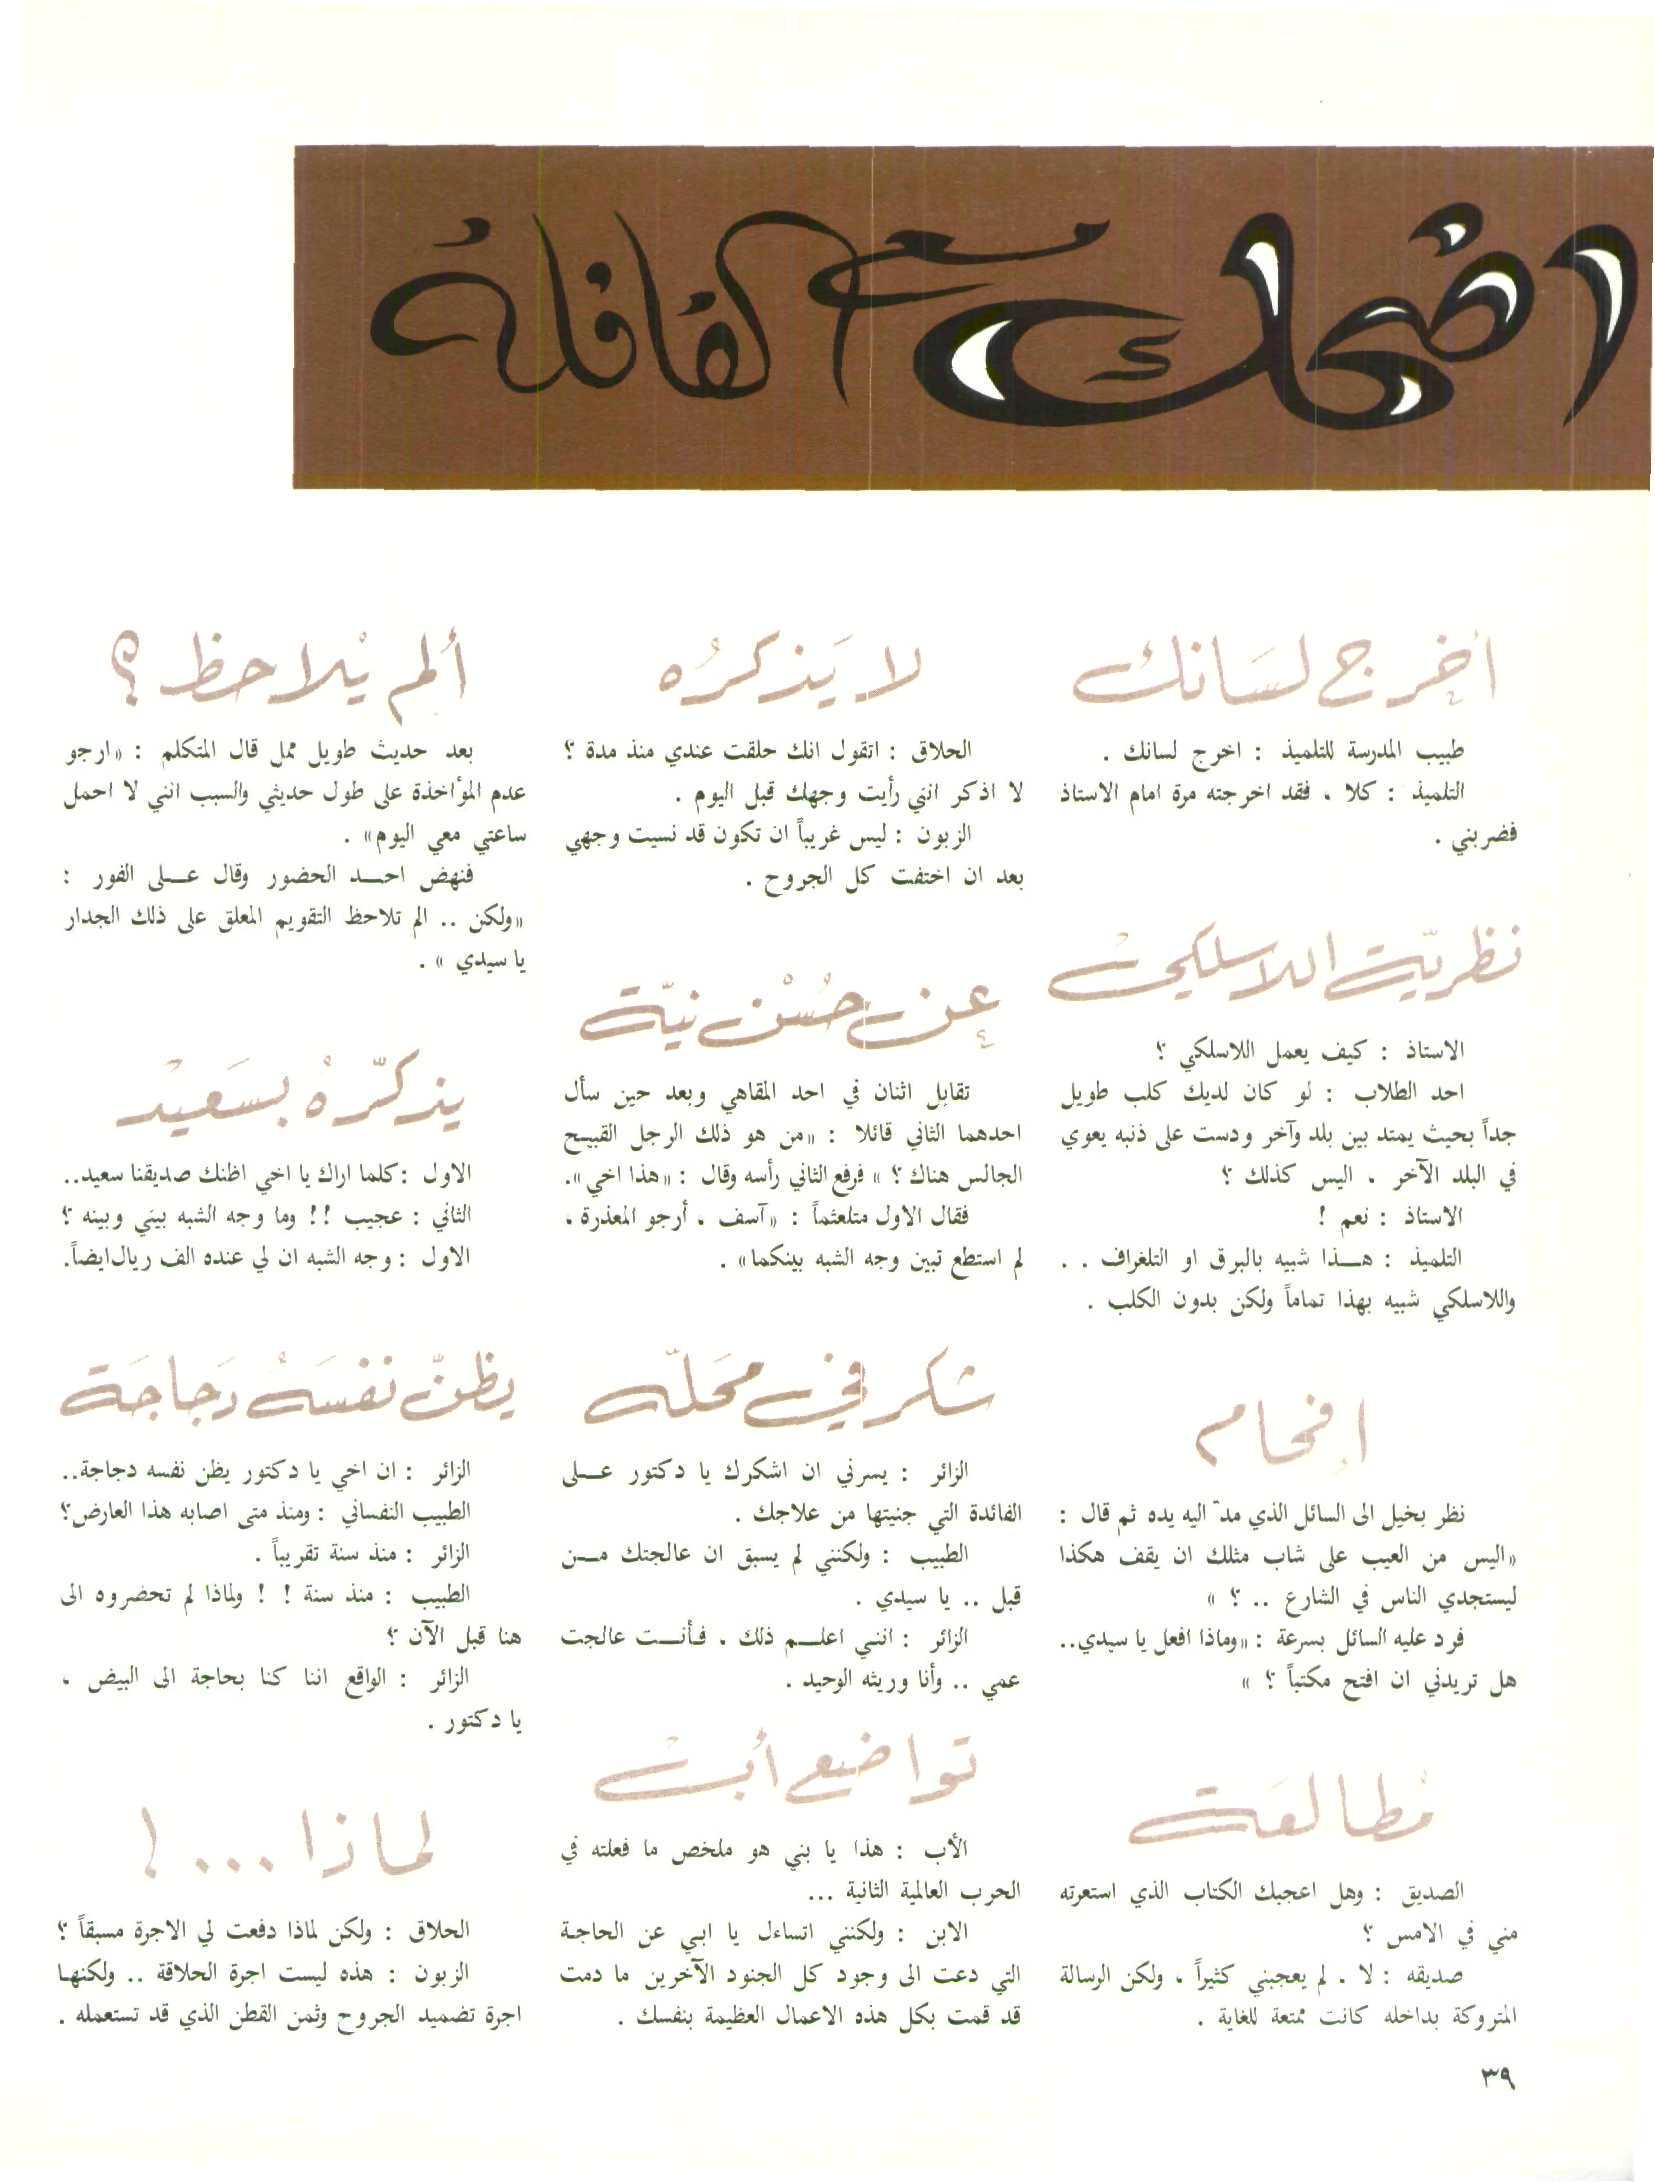 اضحك مع القافلة
أخرج لسانك
طبيب المدرسة للتلميذ : اخرج لسانك .
التلميذ : كلا ، فقد اخرجته مرة امام الاستاذ
فضربني .
نظرية اللاسلكي
الاستاذ : كيف يعمل اللاسلكي ؟
احد الطلاب : لو كان لديك كلب طويل
جداً بحيث يمتد بين بلد وآخر ودست على ذنبه يعوي
في البلد الآخر . اليس كذلك ؟
الاستاذ : نعم !
التلميذ : هـذا شبيه بالبرق او التلغراف . .
واللاسلكي شبيه بهذا تماماً ولكن بدون الكلب .
إفحام
نظر بخيل الى السائل الذي مدّ اليه يده ثم قال :
«اليس من العيب على شاب مثلك ان يقف هكذا
ليستجدي الناس في الشارع .. ؟ »
فرد عليه السائل بسرعة : «وماذا افعل يا سيدي..
هل تريدني ان افتح مكتباً ؟ »
مُطالعَة
الصديق : وهل اعجبك الكتاب الذي استعرته
مني في الامس ؟
صديقه : لا . لم يعجبني كثيراً ، ولكن الرسالة
المتروكة بداخله كانت ممتعة للغاية .
لا يَذكرُه
الحلاق : اتقول انك حلقت عندي منذ مدة ؟
لا اذكر انني رأيت وجهك قبل اليوم .
الزبون : ليس غريباً ان تكون قد نسيت وجهي
بعد ان اختفت كل الجروح .
عن حُسْن نيّة
تقابل اثنان في احد المقاهي وبعد حين سأل
احدهما الثاني قائلا : «من هو ذلك الرجل القبيح
الجالس هناك ؟ » فرفع الثاني رأسه وقال : «هذا اخي».
فقال الاول متلعثماً : «آسف ، أرجو المعذرة ،
لم استطع تبين وجه الشبه بينكما» .
شكر في محَلّه
الزائر : يسرني ان اشكرك يا دكتور عـلى
الفائدة التي جنيتها من علاجك .
الطبيب : ولكنني لم يسبق ان عالجتك مـن
قبل .. يا سيدي .
الزائر : انني اعلـم ذلك . فـأنـت عالجت
عمي .. وأنا وريثه الوحيد .
تواضع أب
الأب : هذا يا بني هو ملخص ما فعلته في
الحرب العالمية الثانية ...
الابن : ولكنني اتساءل يا ابي عن الحاجة
التي دعت الى وجود كل الجنود الآخرين ما دمت
قد قمت بكل هذه الاعمال العظيمة بنفسك .
ألم يُلاحظ ؟
بعد حديث طويل ممل قال المتكلم : «ارجو
عدم المؤاخذة على طول حديثي والسبب انني لا احمل
ساعتي معي اليوم» .
فنهض احـد الحضور وقال عـلى الفور :
«ولكن .. الم تلاحظ التقويم المعلق على ذلك الجدار
يا سيدي » .
يذكّرهُ بسَعيد
الاول : كلما اراك يا اخي اظنك صديقنا سعيد..
الثاني : عجيب !! وما وجه الشبه بيني وبينه ؟
الاول : وجه الشبه ان لي عنده الف ريال ايضاً.
يظنّ نفسَهُ دَجاجَة
الزائر : ان اخي يا دكتور يظن نفسه دجاجة..
الطبيب النفساني : ومنذ متى اصابه هذا العارض؟
الزائر : منذ سنة تقريباً .
الطبيب : منذ سنة ! ! ولماذا لم تحضروه الى
هنا قبل الآن ؟
الزائر : الواقع اننا كنا بحاجة الى البيض ،
يا دكتور .
لماذا ... !
الحلاق : ولكن لماذا دفعت لي الاجرة مسبقاً ؟
الزبون : هذه ليست اجرة الحلاقة .. ولكنها
اجرة تضميد الجروح وثمن القطن الذي قد تستعمله .
٣٩